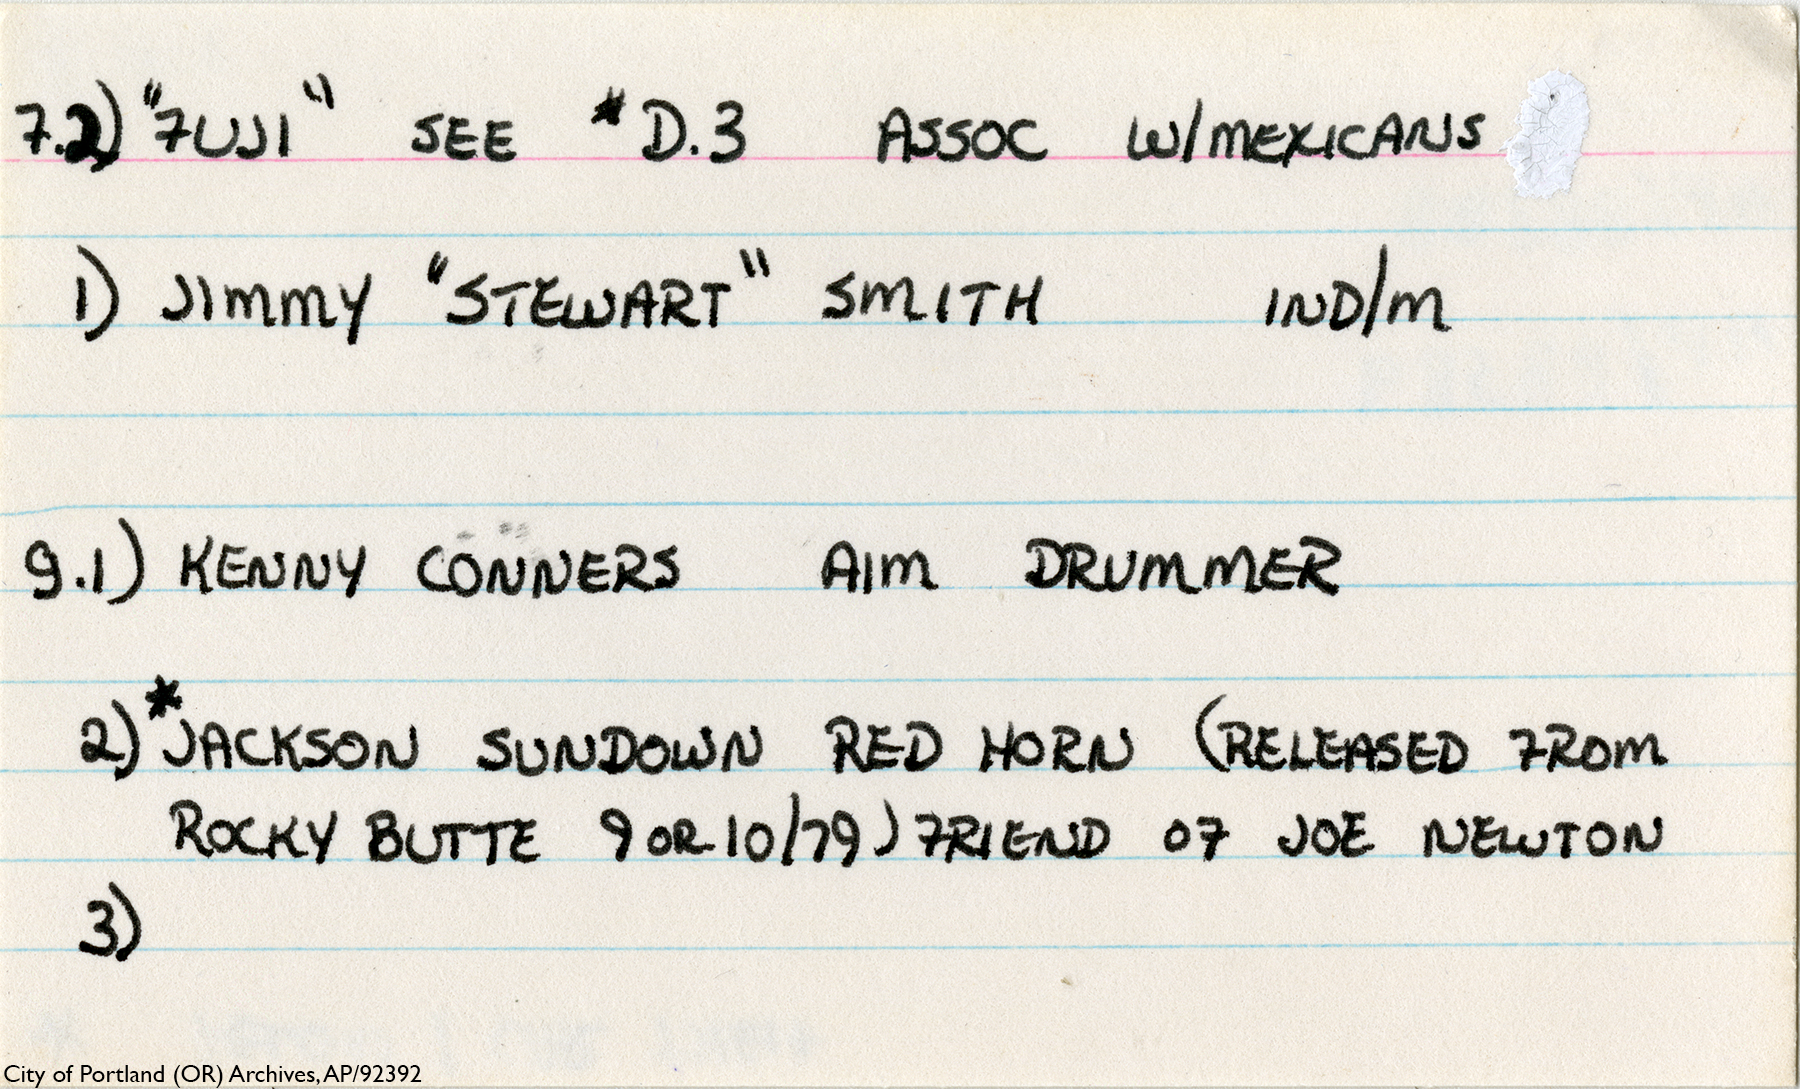 7.2) "FUJI" SEE *D.3 ASSOC W/MEXICANS
1) JIMMY "STEWART" SMITH IND/M
9.1) KENNY CONNERS AIM DRUMMER
2) *JACKSON SUNDOWN RED HORN (RELEASED FROM
ROCKY BUTTE 9 OR 10/79) FRIEND OF JOE NEWTON
3)
City of Portland (OR) Archives, AP/92392